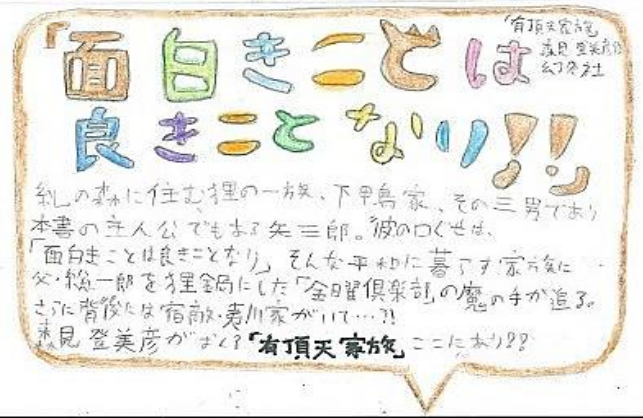 「面白きことは
良きことなり!!
『有頂天家族』
森見登美彦
幻冬社
糺の森に住む狸の一族、下甲鳥家、その三男であり
本書の主人公でもある矢三郎。彼の口ぐせは、
「面白きことは良きことなり」そんな平和に暮らす家族に
父・総一郎を狸鍋にした「金曜倶楽部」の魔の手が迫る。
さらに背後には宿敵・夷川家がいて…?!
森見登美彦がおくる「有頂天家族」ここにあり!!